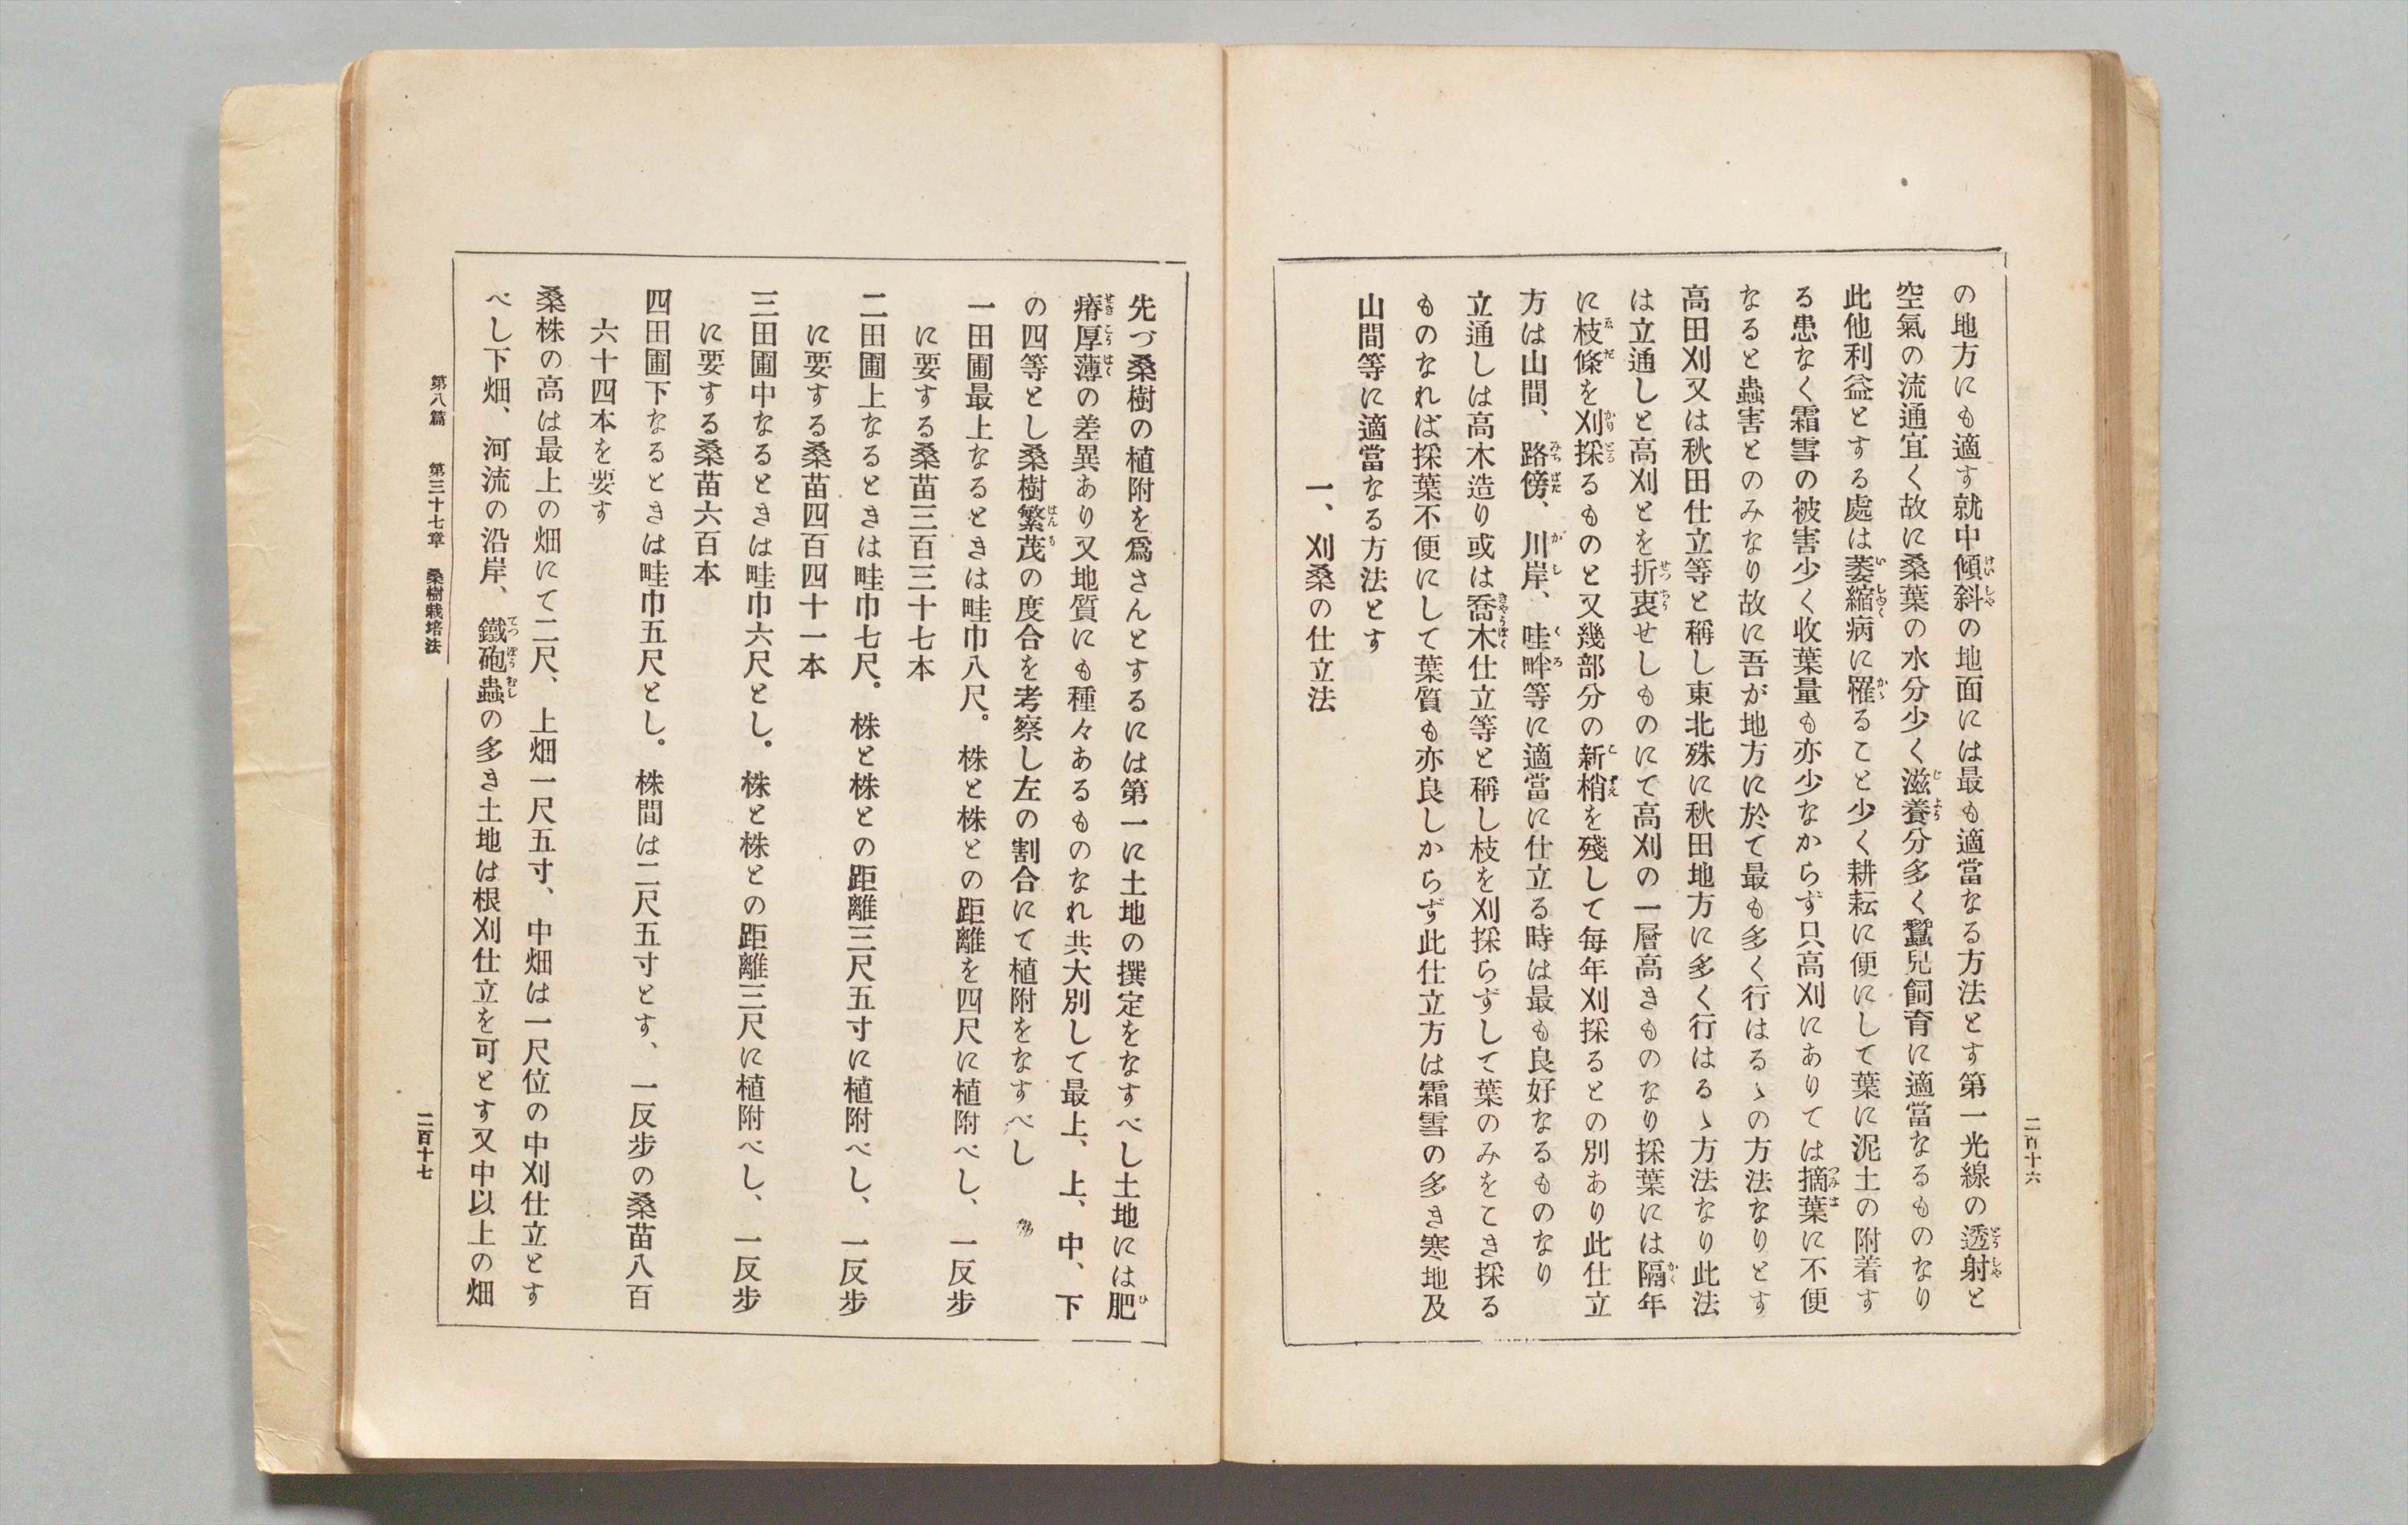 二百十六
の地方にも適す就中傾斜の地面には最も適當なる方法とす第一光線の透射と
空氣の流通宜く故に桑葉の水分少く滋養分多く蠶兒飼育に適當なるものなり
此他利益とする處は萎縮病に罹ること少く耕耘に便にして葉に泥土の附着す
る患なく霜雪の被害少く收葉量も亦少なからず只高刈にありては摘葉に不便
なると蟲害とのみなり故に吾が地方に於て最も多く行はるゝの方法なりとす
高田刈又は秋田仕立等と稱し東北殊に秋田地方に多く行はるゝ方法なり此法
は立通しと高刈とを折衷せしものにて高刈の一層高きものなり採葉には隔年
に枝條を刈採るものと又幾部分の新梢を殘して每年刈採るとの別あり此仕立
方は山間、路傍、川岸、畦畔等に適當に仕立る時は最も良好なるものなり
立通しは高木造り或は喬木仕立等と稱し枝を刈採らずして葉のみをこき採る
ものなれば採葉不便にして葉質も亦良しからず此仕立方は霜雪の多き寒地及
山間等に適當なる方法とす
一、刈桑の仕立法
先づ桑樹の植附を爲さんとするには第一に土地の撰定をなすべし土地には肥
瘠厚薄の差異あり又地質にも種々あるものなれ共大別して最上、上、中、下
の四等とし桑樹繁茂の度合を考察し左の割合にて植附をなすべし
一田圃最上なるときは畦巾八尺。株と株との距離を四尺に植附べし、一反步
に要する桑苗三百三十七本
二田圃上なるときは畦巾七尺。株と株との距離三尺五寸に植附べし、一反步
に要する桑苗四百四十一本
三田圃中なるときは畦巾六尺とし。株と株との距離三尺に植附べし、一反步
に要する桑苗六百本
四田圃下なるときは畦巾五尺とし。株間は二尺五寸とす、一反步の桑苗八百
六十四本を要す
桑株の高は最上の畑にて二尺、上畑一尺五寸、中畑は一尺位の中刈仕立とす
べし下畑、河流の沿岸、鐵砲蟲の多き土地は根刈仕立を可とす又中以上の畑
第八篇 第三十七章 桑樹栽培法
二百十七